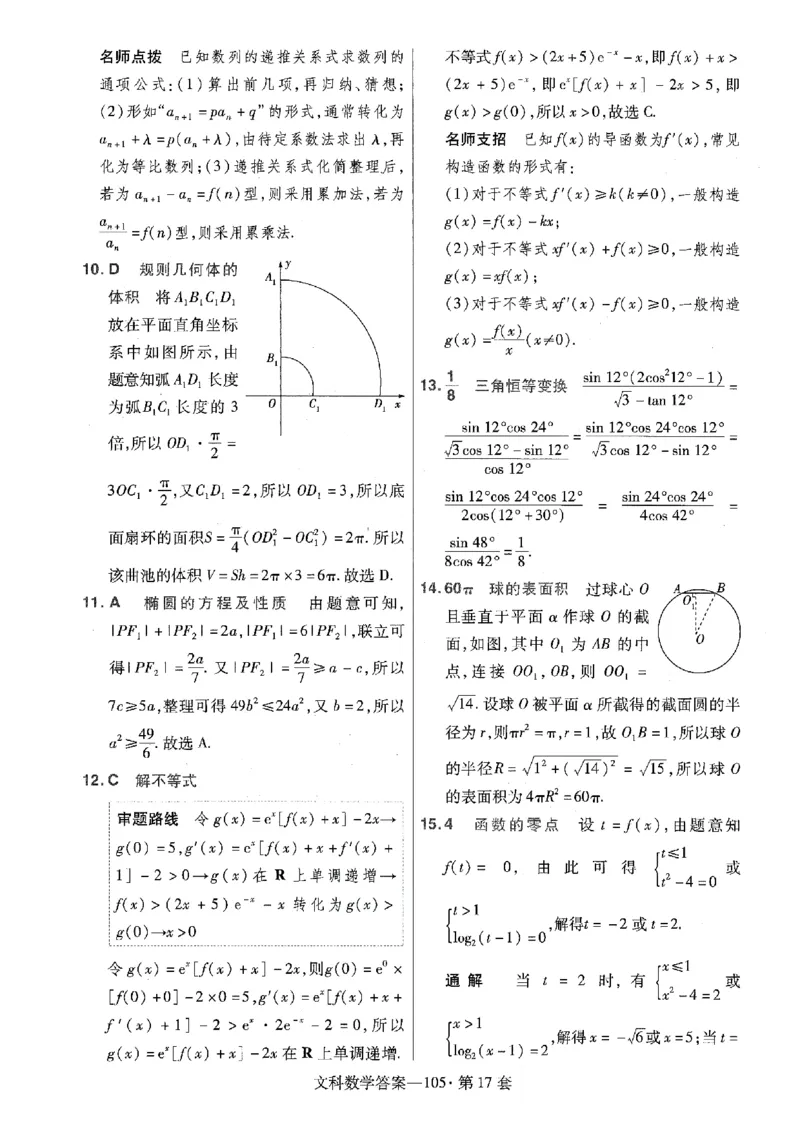 名师点拨 已知数列的递推关系式求数列的
通项公式:(1)算出前几项,再归纳、猜想;
(2)形如“aₙ₊₁=paₙ+q”的形式,通常转化为
aₙ₊₁+λ=p(aₙ+λ),由待定系数法求出λ,再
化为等比数列;(3)递推关系式化简整理后,
若为aₙ₊₁-aₙ=f(n)型,则采用累加法,若为
aₙ₊₁/aₙ=f(n)型,则采用累乘法.
10.D 规则几何体的
体积 将A₁B₁C₁D₁
放在平面直角坐标
系中如图所示,由
题意知弧A₁D₁长度
为弧B₁C₁长度的3
倍,所以OD₁·π/2=
y
A₁
B₁
O C₁ D₁ x
3OC₁·π/2,又C₁D₁=2,所以OD₁=3,所以底
面扇环的面积S=π/4(OD₁²-OC₁²)=2π.所以
该曲池的体积V=Sh=2π×3=6π.故选D.
11.A 椭圆的方程及性质 由题意可知,
|PF₁|+|PF₂|=2a,|PF₁|=6|PF₂|,联立可
得|PF₂|=2a/7.又|PF₂|=2a/7≥a-c,所以
7c≥5a,整理可得49b²≤24a²,又b=2,所以
a²≥49/6.故选A.
12.C 解不等式
审题路线 令g(x)=eˣ[f(x)+x]-2x→
g(0)=5,g′(x)=eˣ[f(x)+x+f′(x)+
1]-2>0→g(x)在R上单调递增→
f(x)>(2x+5)e⁻ˣ-x转化为g(x)>
g(0)→x>0
令g(x)=eˣ[f(x)+x]-2x,则g(0)=e⁰×
[f(0)+0]-2×0=5,g′(x)=eˣ[f(x)+x+
f′(x)+1]-2>eˣ·2e⁻ˣ-2=0,所以
g(x)=eˣ[f(x)+x]-2x在R上单调递增.
不等式f(x)>(2x+5)e⁻ˣ-x,即f(x)+x>
(2x+5)e⁻ˣ,即eˣ[f(x)+x]-2x>5,即
g(x)>g(0),所以x>0,故选C.
名师支招 已知f(x)的导函数为f′(x),常见
构造函数的形式有:
(1)对于不等式f′(x)≥k(k≠0),一般构造
g(x)=f(x)-kx;
(2)对于不等式xf′(x)+f(x)≥0,一般构造
g(x)=xf(x);
(3)对于不等式xf′(x)-f(x)≥0,一般构造
g(x)=f(x)/x(x≠0).
13.1/8 三角恒等变换 sin 12°(2cos²12°-1)/(√3-tan 12°)=
sin 12°cos 24°/((√3cos 12°-sin 12°)/cos 12°)=sin 12°cos 24°cos 12°/(√3cos 12°-sin 12°)=
sin 12°cos 24°cos 12°/(2cos(12°+30°))=sin 24°cos 24°/(4cos 42°)=
sin 48°/(8cos 42°)=1/8.
14.60π 球的表面积 过球心O
且垂直于平面α作球O的截
面,如图,其中O₁为AB的中
点,连接OO₁,OB,则OO₁=
A B
O₁
O
√14.设球O被平面α所截得的截面圆的半
径为r,则πr²=π,r=1,故O₁B=1,所以球O
的半径R=√(1²+(√14)²)=√15,所以球O
的表面积为4πR²=60π.
15.4 函数的零点 设t=f(x),由题意知
f(t)=0,由此可得{t≤1 t²-4=0或
{t>1 log₂(t-1)=0,解得t=-2或t=2.
通解 当t=2时,有{x≤1 x²-4=2或
{x>1 log₂(x-1)=2,解得x=-√6或x=5;当t=
文科数学答案—105·第17套